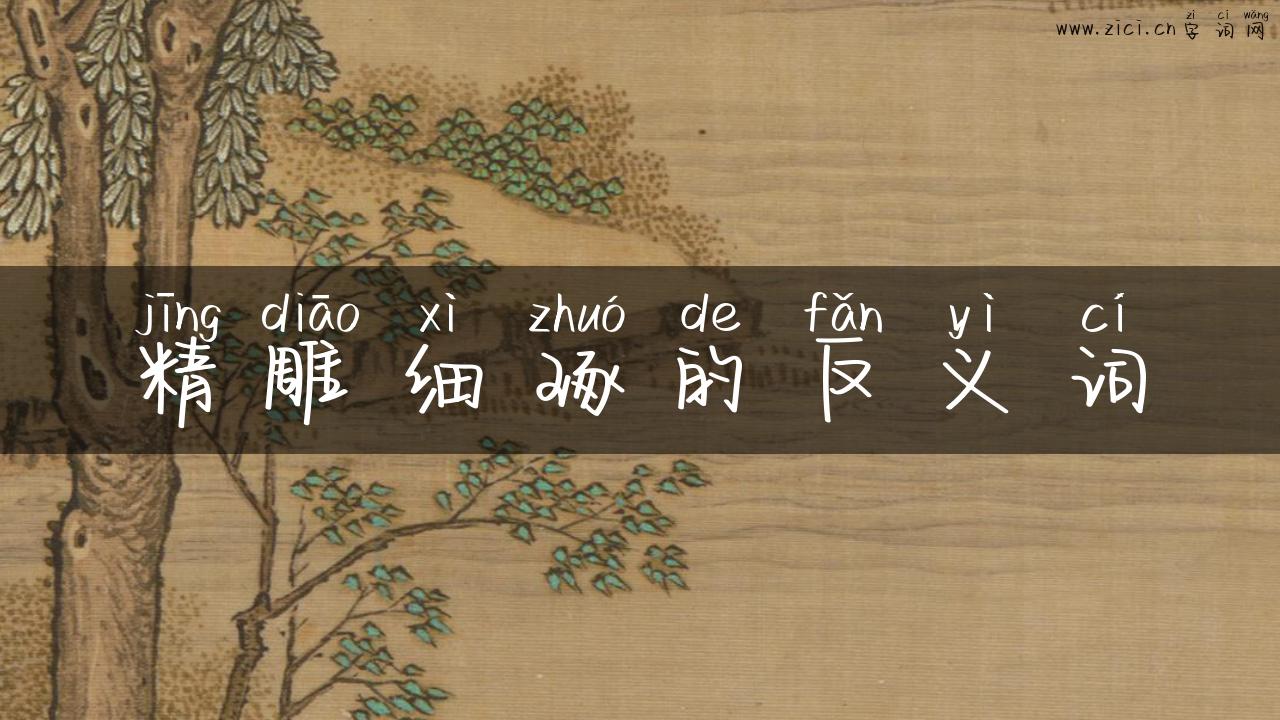 zì cí wǎng
www.zici.cn 字词网
jīng diāo xì zhuó de fǎn yì cí
精雕细琢的反义词